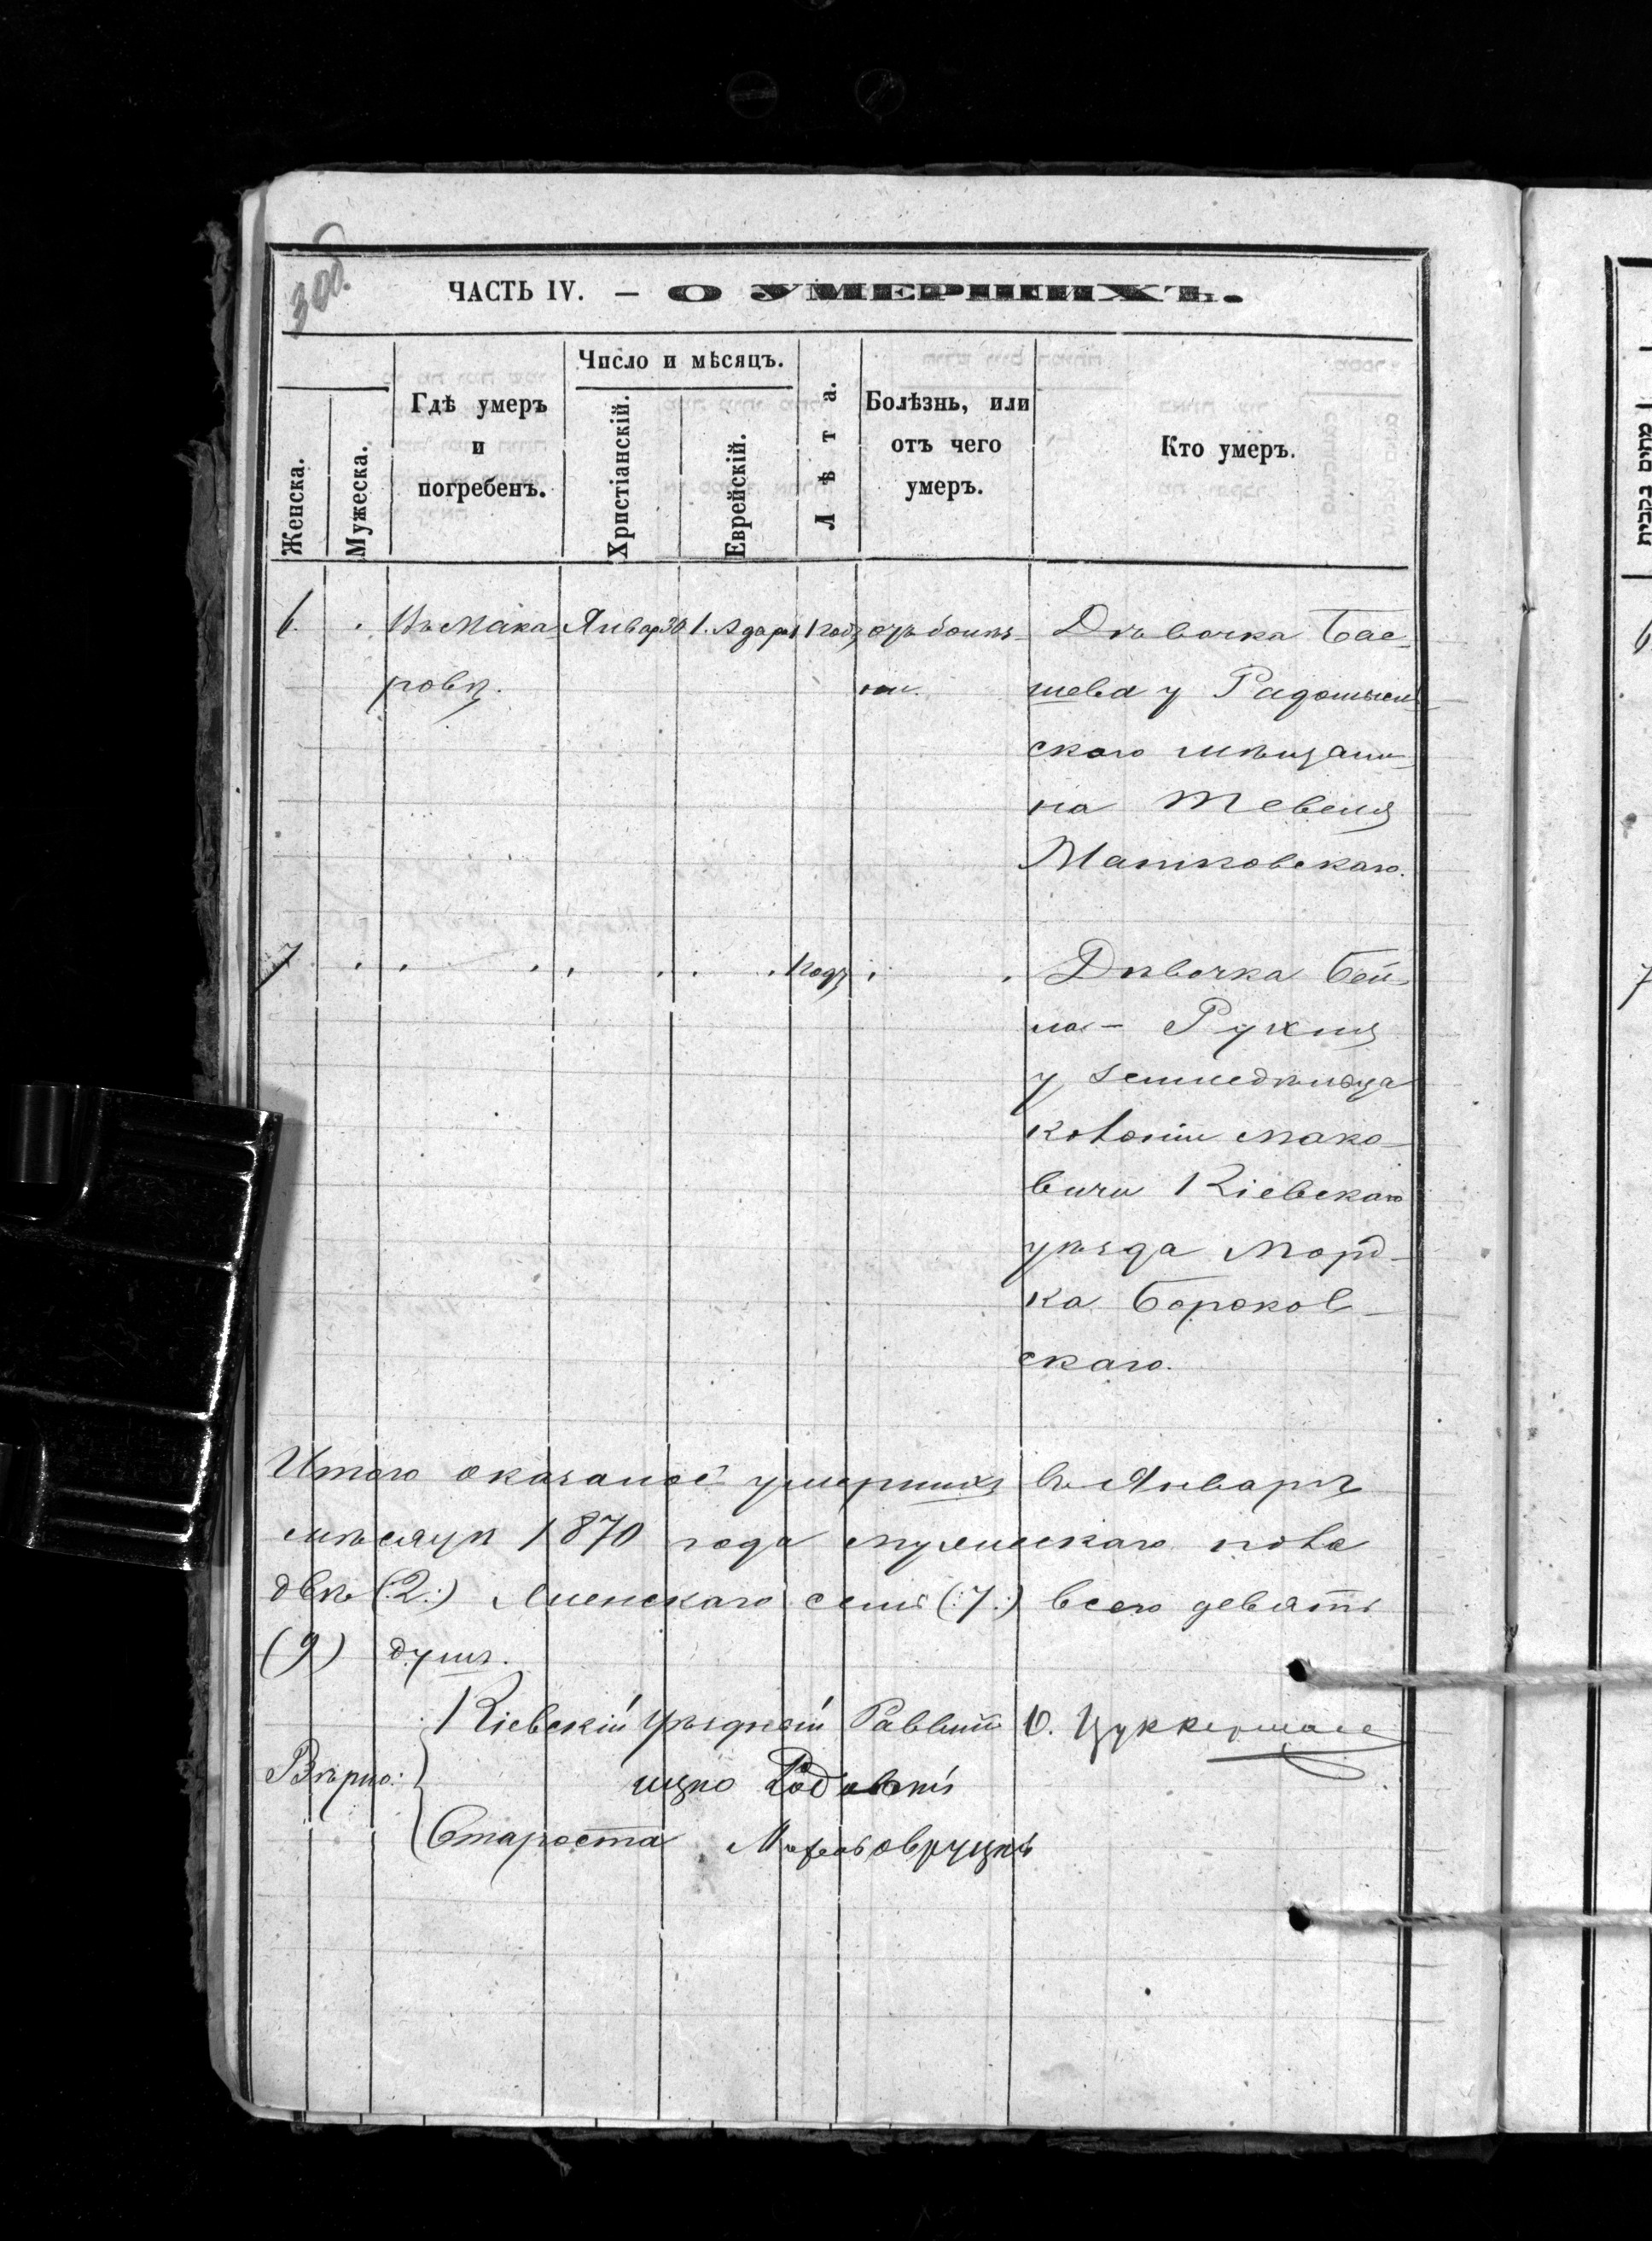 300
ЧАСТЬ IV. — О УМЕРШИХЪ.
Женска.
Мужеска.
Гдѣ умеръ
и
погребенъ.
Число и мѣсяцъ.
Христіанскій.
Еврейскій.
Лѣта.
Болѣзнь, или
отъ чего
умеръ.
Кто умеръ.
6 . Въ Мака Январ 30 1. Адара 1 годъ отъ болѣз- Дѣвочка Бас-
ровѣ. ни. шева у Радомысль
скаго мѣщани
на Тевеля
Матповскаго.
7 . . . . . . . 1 годъ . . Дѣвочка Бей-
ла - Рухля
у земледѣльца
колоніи Мако-
вичи Кіевскаго
уѣзда Морд-
ка Бороков-
скаго.
Итого оказалось умершихъ въ Январѣ
мѣсяцѣ 1870 года мужескаго пола
двѣ (:2:) женскаго семь (:7:) всего девять
(9) душъ.
Кіевскій Уѣздный Раввинъ Ю. Цуккерман
Вѣрно: ицко
Староста Овруцкій